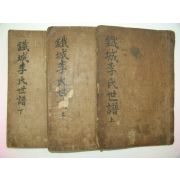 鐵城李氏世譜上
鐵城李氏世
鐵城李氏世譜下